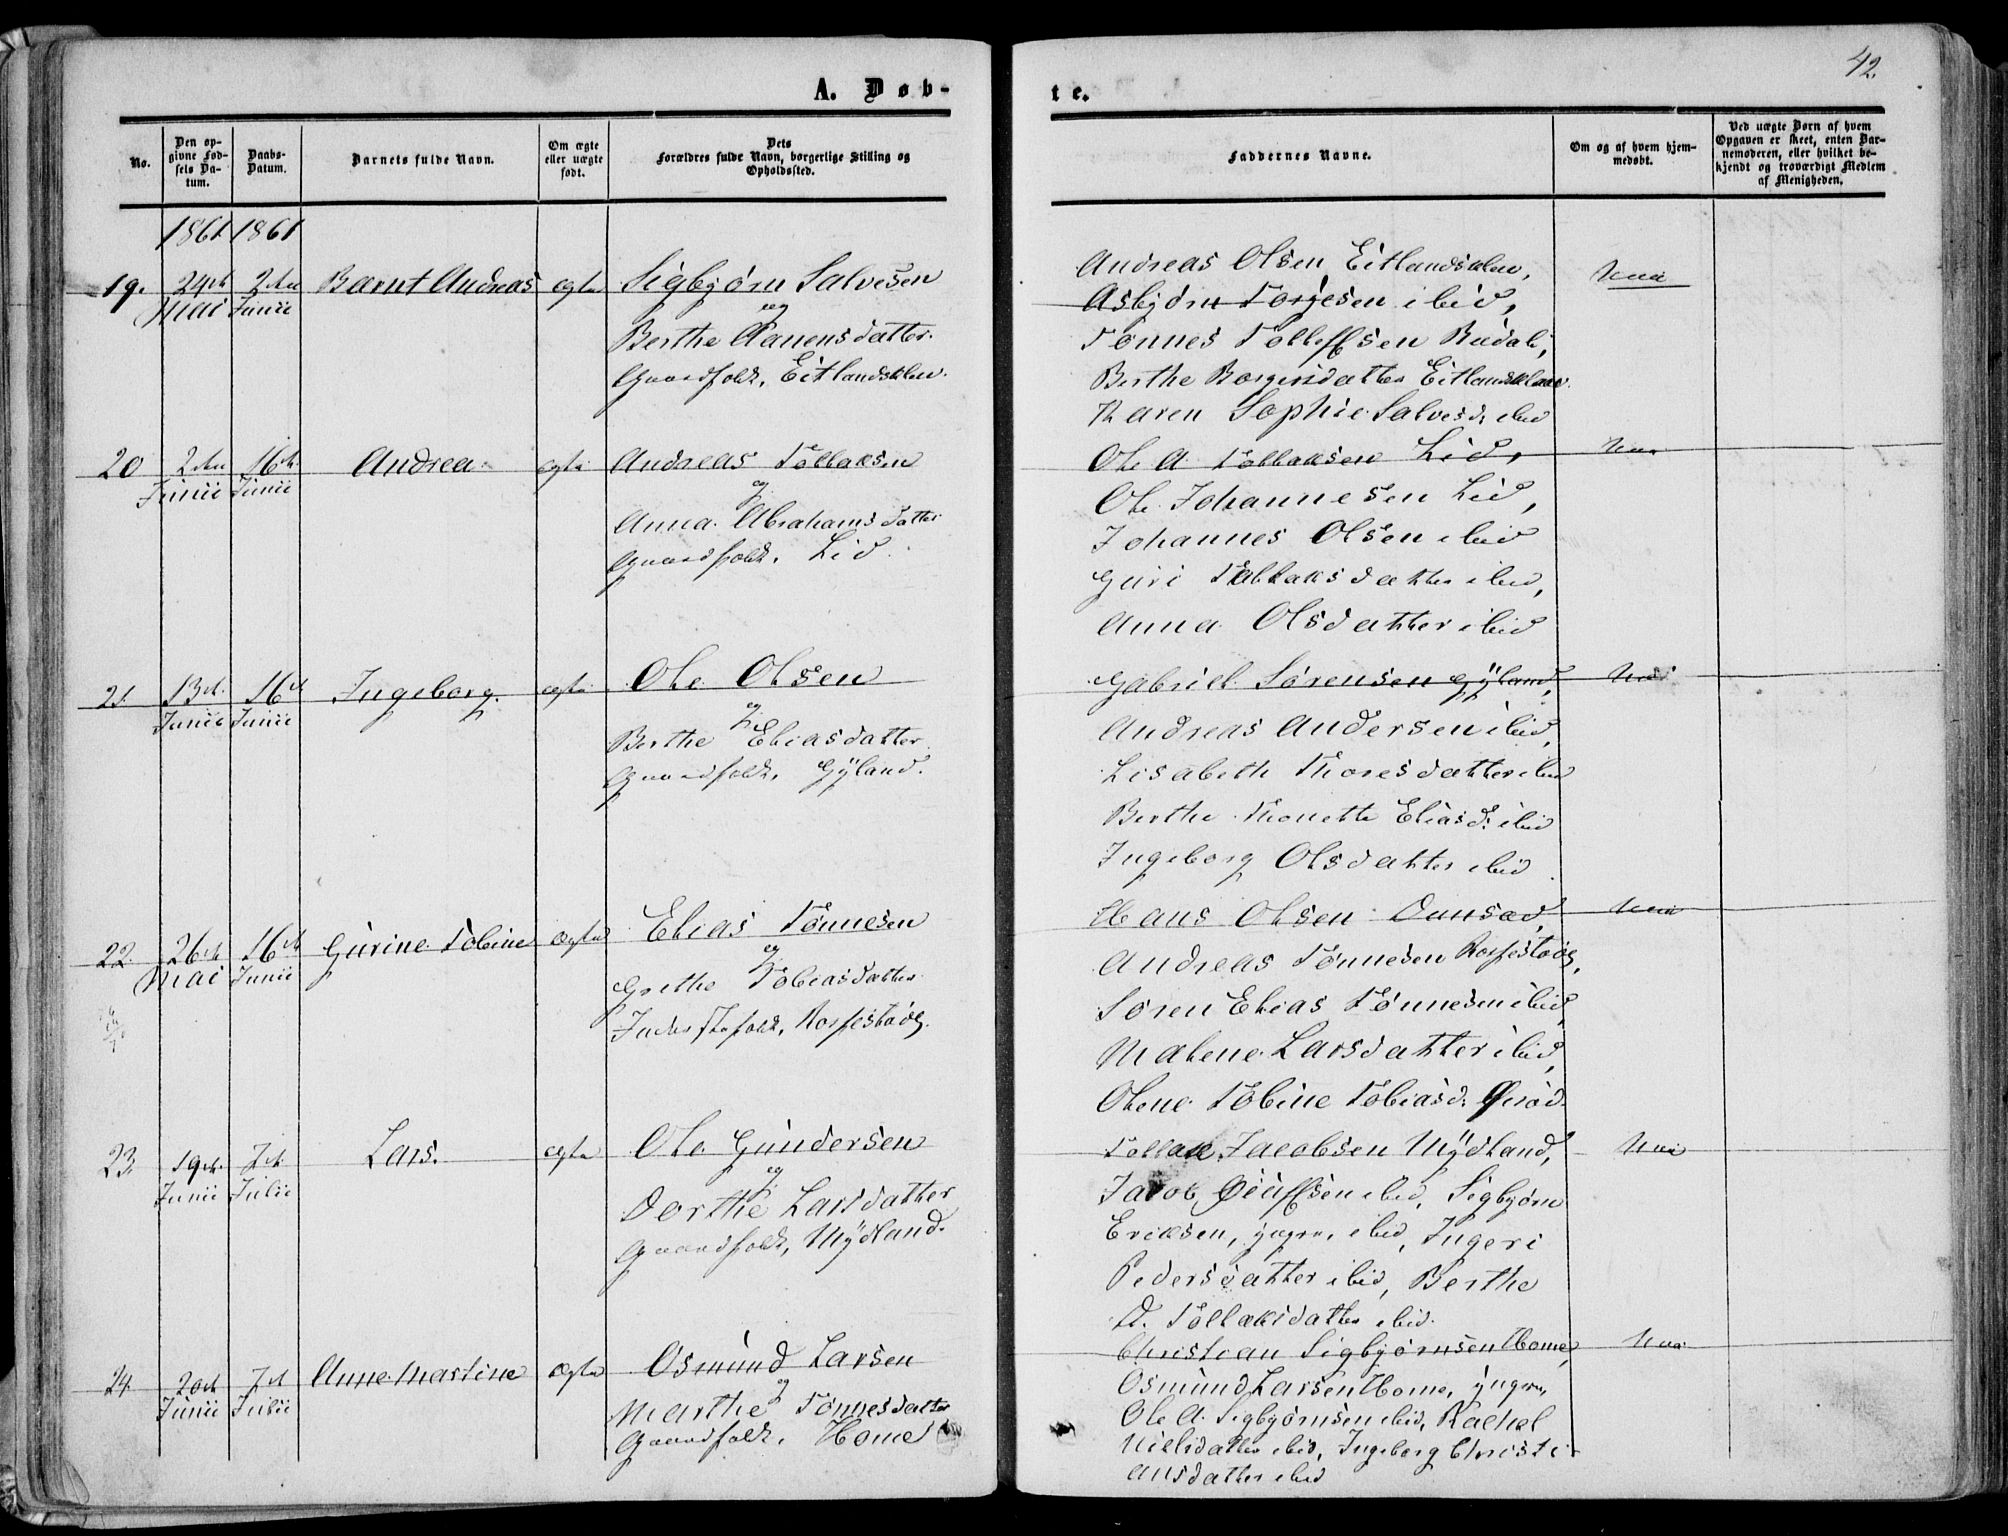 42.
A. Døb-
te.
No.
Den op-
givne Fød-
sels Da-
tum.
Daabs-
Datum.
Barnets fulde Navn.
Om ægte
eller uægte
født.
Dets
Forældres fulde Navn, borgerlige Stilling og
Opholdssted.
Faddernes Navne.
Om og af hvem hjem-
medøbt.
Ved uægte Børn af hvem
Opgaven er skeet, enten Bar-
nemoderen, eller hvilket be-
kjendt og troværdigt Medlem
af Menigheden.
1861 1861
19. 24de 2den Barnt Andreas ægte Sigbjørn Salvesen
Mai Junii og
Berthe Aanensdatter.
Gaardfolk, Eitlandsklen.
Andreas Olsen Eitlandsklen,
Asbjørn Torjesen ibid,
Tønnes Tolleffsen Rødal,
Berthe Borgersdatter Eitlandsklen.
Karen Sophie Salvesd. ibid
Nei
20 2den 16de Andrea ægte Andreas Tollaksen
Junii Junii og
Anna Abrahamsdatter
Gaardfolk, Lid
Ole A. Tollaksen Lid,
Ole Johannesen Lid,
Johannes Olsen ibid
Guri Tollaksdatter ibid,
Anna Olsdatter ibid
Nei
21. 13de 16de Ingeborg. ægte Ole Olsen
Junii Junii og
Berthe Eliasdatter
Gaardfolk, Gÿland.
Gabriel Sørensen Gÿland,
Andreas Andersen ibid,
Lisabeth Thoresdatter ibid
Berthe Thonette Eliasd. ibid
Ingeborg Olsdatter ibid
Nei
22. 26de 16de Gurine Tobine ægte Elias Tønnesen
Mai Junii og
Grethe Tobiasdatter
Inderstfolk, Rossestøøl.
Hans Olsen Dunsæd,
Andreas Tønnesen Rossestøøl,
Søren Elias Tønnesen ibid,
Malene Larsdatter ibid,
Olene Tobine Tobiasd.
Nei
23. 19de 7de Lars. ægte Ole Gundersen
Junii Julii og
Dorthe Larsdatter
Gaardfolk, Mÿdland.
Tollak Jacobsen Mÿdland,
Jacob ibid, Sigbjørn
Eriksen, yngre, ibid, Ingeri
Pedersdatter ibid, Berthe
D. Tollaksdatter ibid.
Nei
24. 20de 7de Anne Martine ægte Osmund Larsen
Junii Julii og
Marthe Tønnesdatter
Gaardfolk, Home
Christian Sigbjørnsen Home,
Osmund Larsen Home, yngre,
Ole A. Sigbjørnsen ibid, Rachel
Nielsdatter ibid, Ingeborg Christi-
ansdatter ibid
Nei